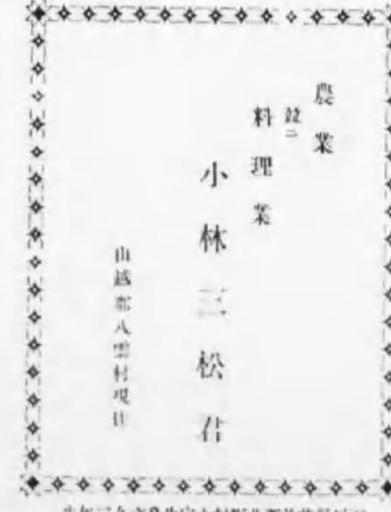 農業
並ニ
料理業
小林三松君
山越郡八雲村現住